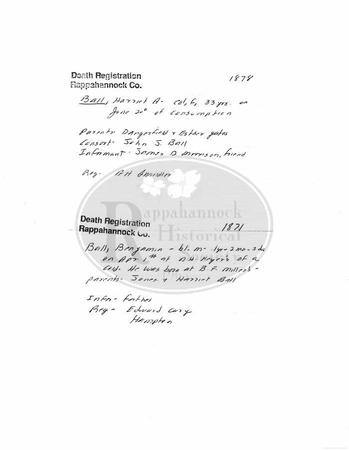 Death Registration
Rappahannock Co.
1878
Ball, Harriet A- Col, F, 33 yrs. on
June 20th of Consumption
Parents Dangerfield & Esther
Consort- John S. Ball
Informant- James D. Morrison, friend
Reg-
Rappahannock
Historical
Death Registration
Rappahannock Co.
1871
Ball, Benjamin - bl. m- 1yr-2mo-3da
on Apr 1th at of a
cold. He was born at B.F. Miller's-
parents- James & Harriet Ball
Info- Father
Reg- Edward Cary
Hampton